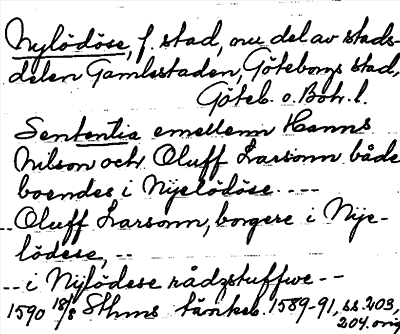 Nylödöse, f. stad, nu del av stads-
delen Gamlestaden, Göteborgs stad,
Göteb. o. Boh. l.
Sententia emellenn Hanns
Nilson och Oluff Larsonn både
boendes i Nijelödöse ----
-- Oluff Larsonn, borgere i Nije-
lödese, --
-- i Nylödese rådzstuffwe --
1590 18/8 Sthms tänkeb. 1589-91, ss. 203,
204. orig